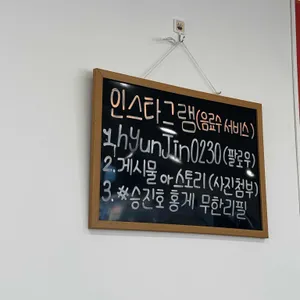 인스타그램(음료수 서비스)
1. hyunjin0230(팔로우)
2. 게시물 or 스토리(사진첨부)
3. #승진호 홍게 무한리필